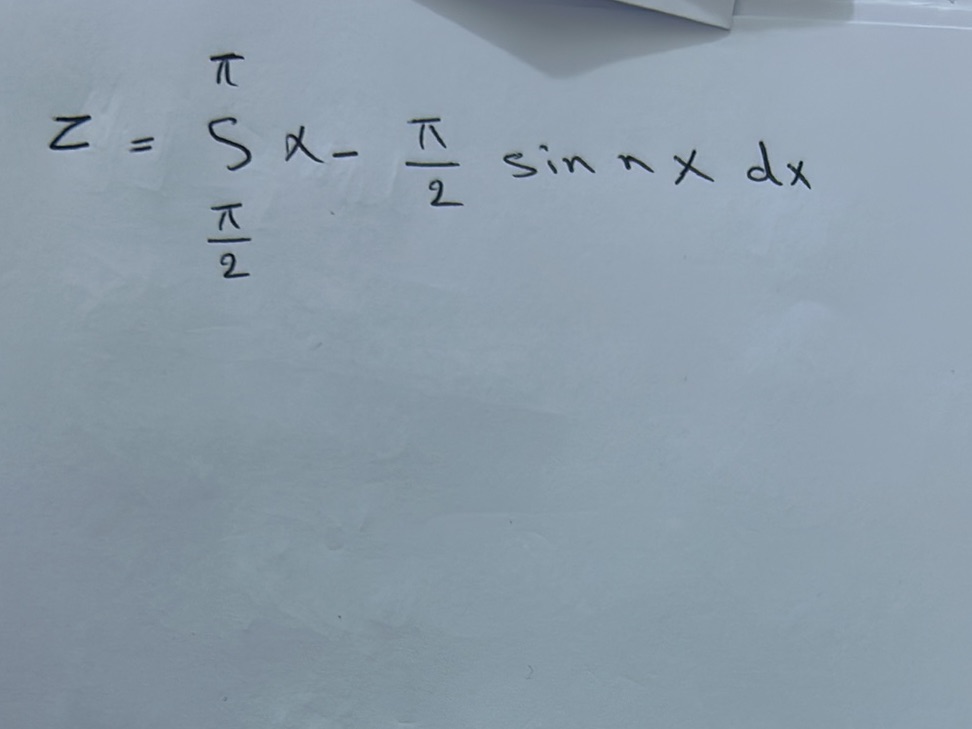 z = ∫_{π/2}^{π} x - π/2 sin n x dx